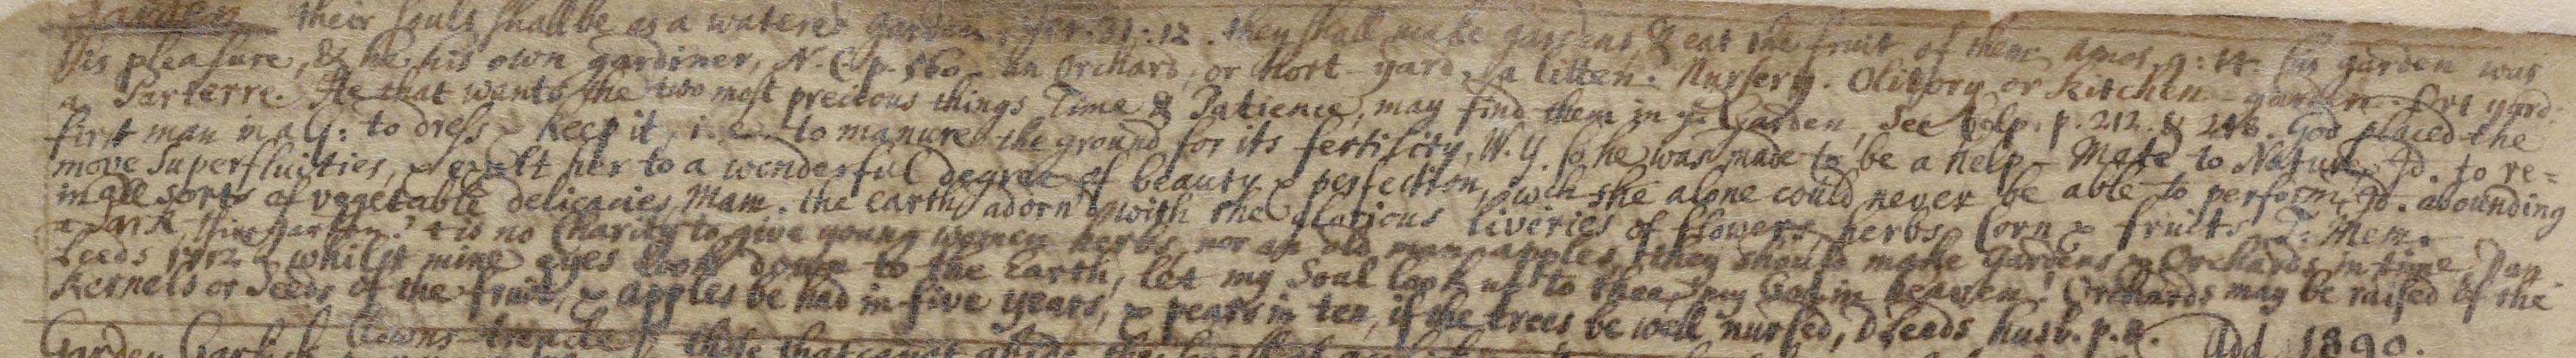 Garden their souls shall be as a watered garden, Jer. 31:12. they shall make gardens, & eat the fruit of them Amos. 9:14. his garden was
his pleasure, & he his own gardiner, N.C. p. 560. an Orchard, or hort-yard, a litten. Nursery. Olitory or kitchen-garden. Ort yard.
a Parterre. He that wants the two most precious things Time & Patience, may find them in ye Garden, See p. 212. & God placed the
first man in a G: to dress & keep it, i.e. to manure the ground for its fertility, W.Y. so he was made to be a help-Mate to Nature, Id. to re=
move Superfluities, & exalt her to a wonderful degree of beauty & perfection, wch she alone could never be able to perform, Id. abounding
in all sorts of vegetable delicacies, Mam. the earth adorn'd with the glorious liveries of flowers, herbs, Corn & fruits, T. Mem.
tis no Charity to give young women herbs, nor an old man apples, they should make Gardens & Orchards in time, Dan
Leeds 1712. whilst mine eyes look down to the Earth, let my Soul look up to thee, my God in heaven! Orchards may be raised of the
Kernels or Seeds of the fruit, & apples be had in five years, & pears in ten, if the trees be well nursed, D Leeds husb. p. 8. Add 1890.
Garden Garlick Clowns-treacle those that canot abide